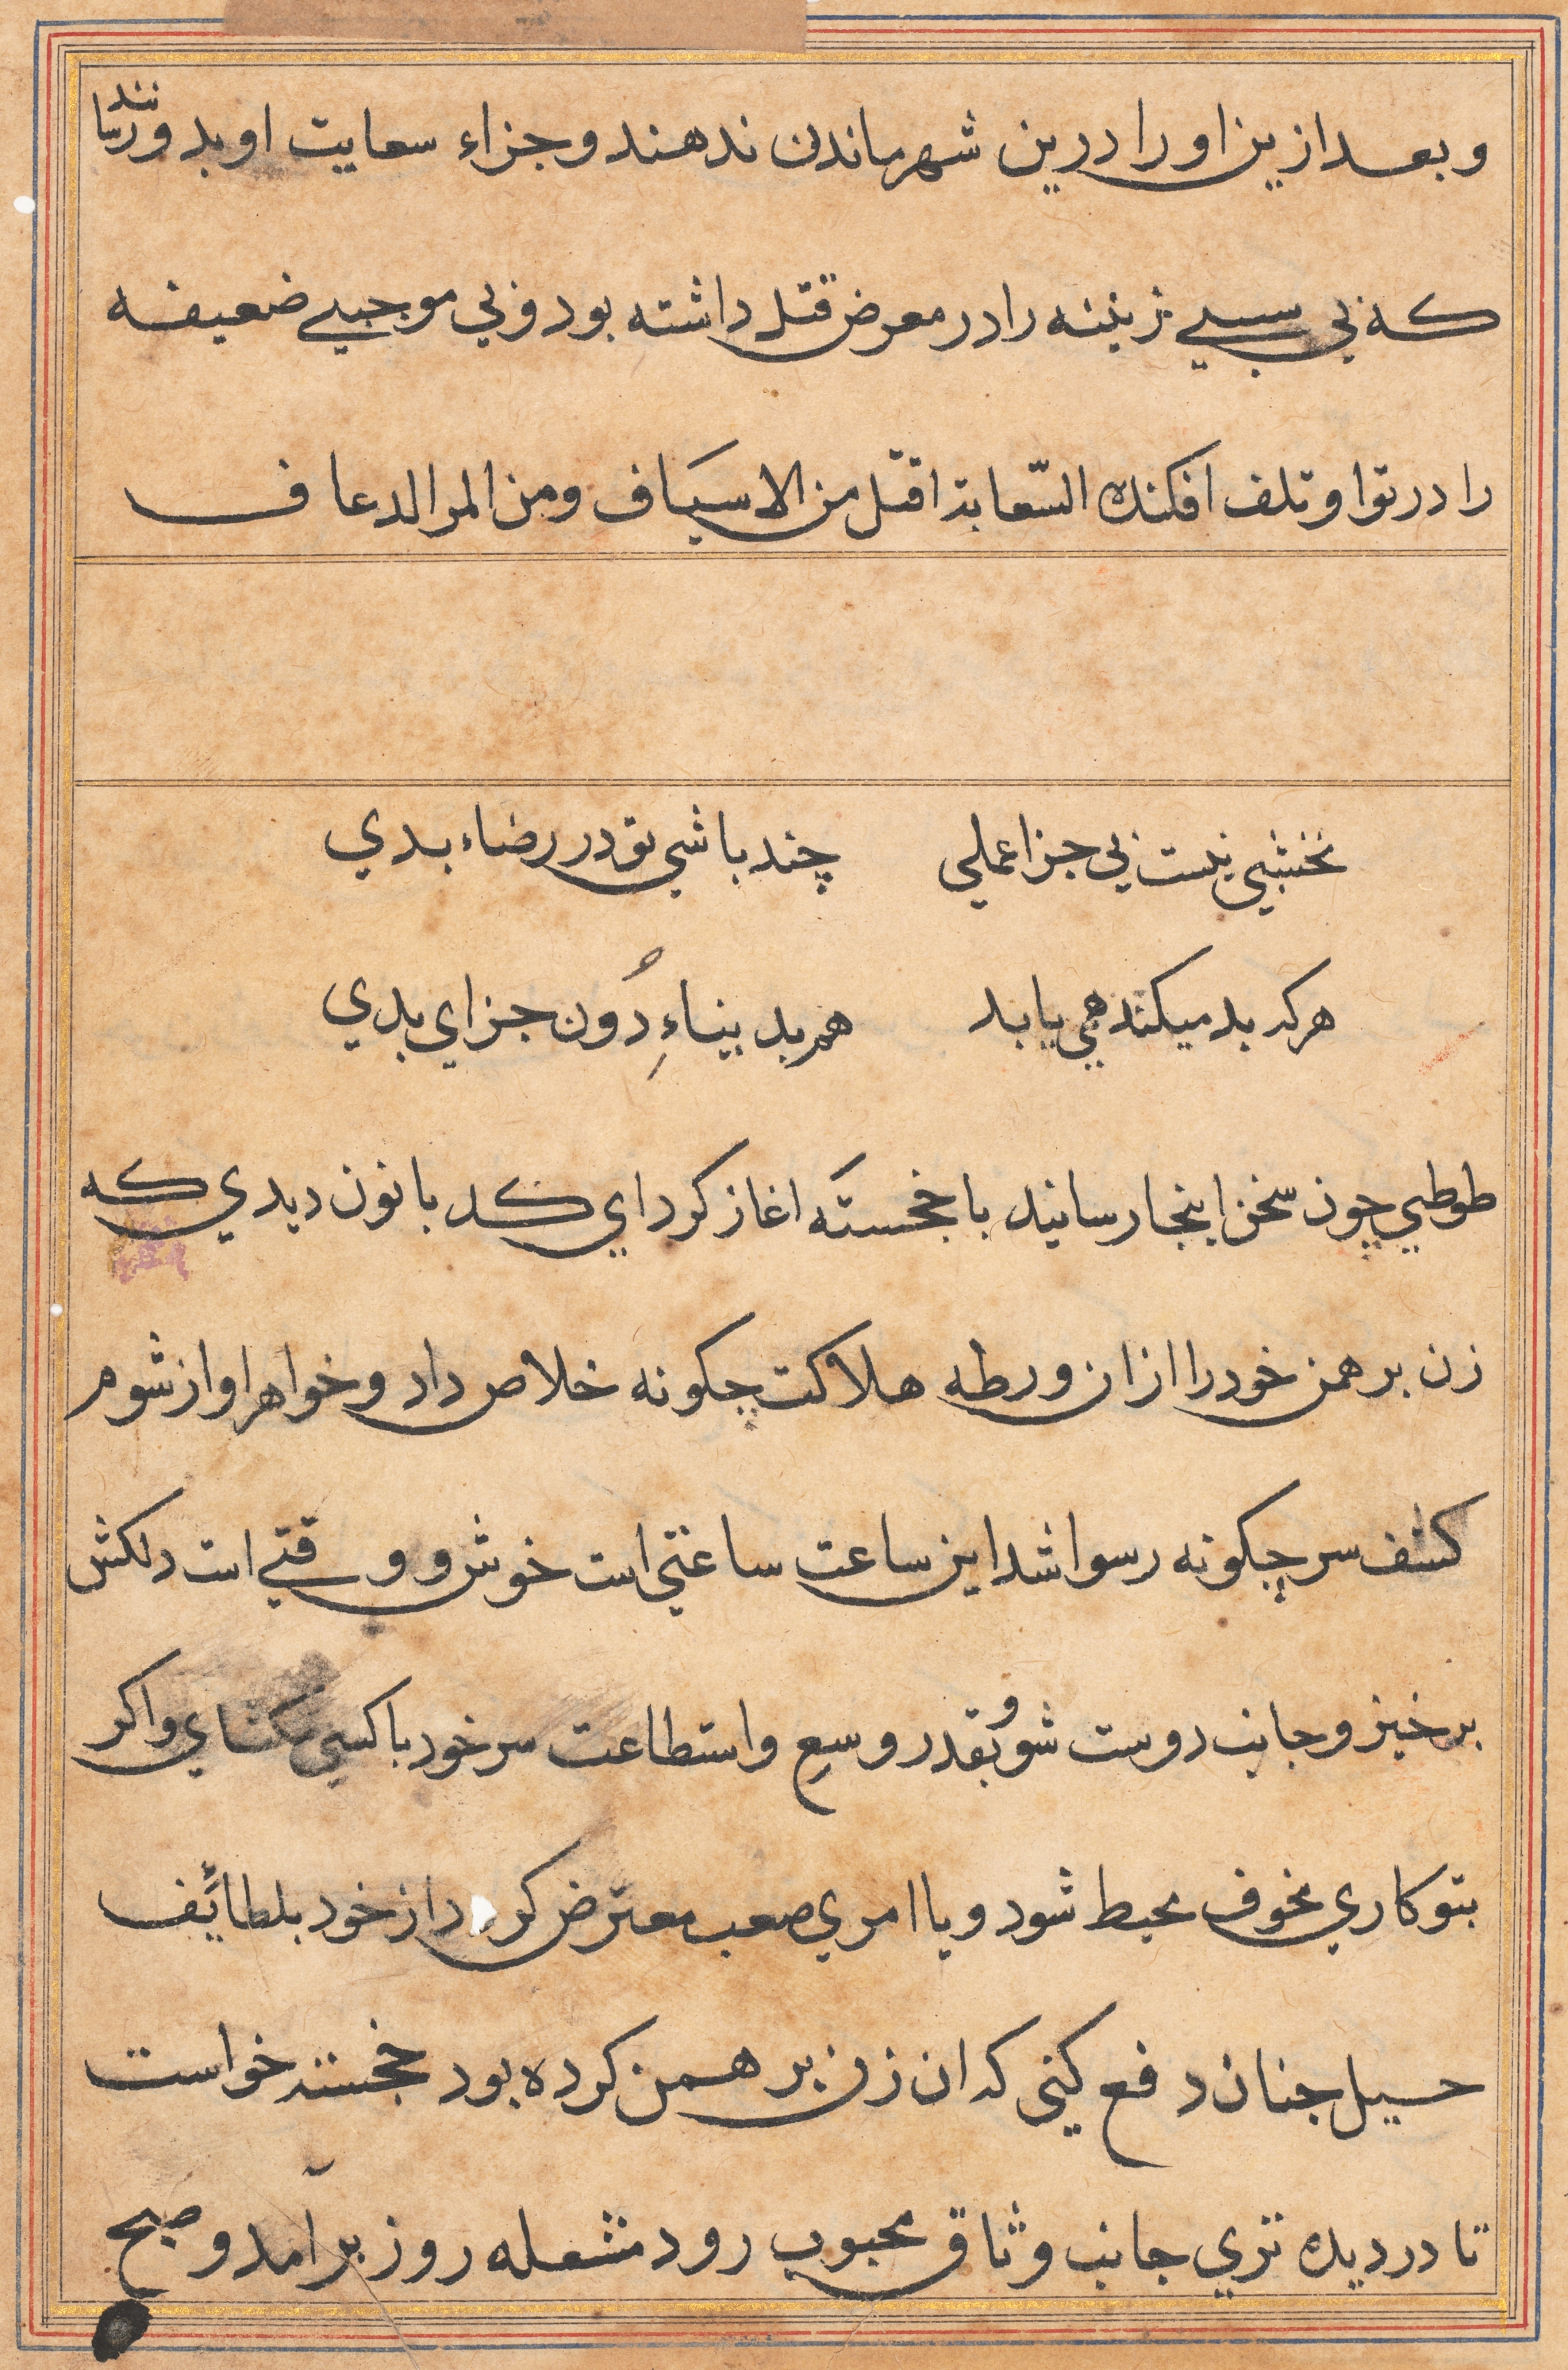 و بعد ازین او را درین شهر ماندن ندهند و جزاء سعایت او بد و رسانند
که بی سببی زینه را در معرض قتل داشته بود و بی موجبی ضعیفه
را در توا و تلف افکنده السّعایة اقتل من الاسیَاف ومن المر الدعاف
نخشبی نیست بی جزا عملی چند باشی تو در رضاء بدی
هرکه بد میکند همی یابد هم بد بیناءِ دُون جزای بدی
طوطی چون سخن اینجا رسانید با خجسته اغاز کرد ای کد بانون دیدی که
زن برهمن خود را ازان ورطه هلاکت چکونه خلاص داد و خواهر او از شوم
کشف سر چکونه رسوا شد این ساعت ساعتی است خوش و وقتی است دلکش
برخیز و جانب دوست شو و بقدر وسعِ و استطاعت سر خود با کسی مکشای و اکر
بتو کاری مخوف محیط شود و یا امری صعب معترض کردد از خود بلطائف
حسیل جنان دفع کنی که ان زن برهمن کرده بود خجسته خواست
تا در دیده تری جانب وثاق محبوب رود مشعله روز برآمد و صبح